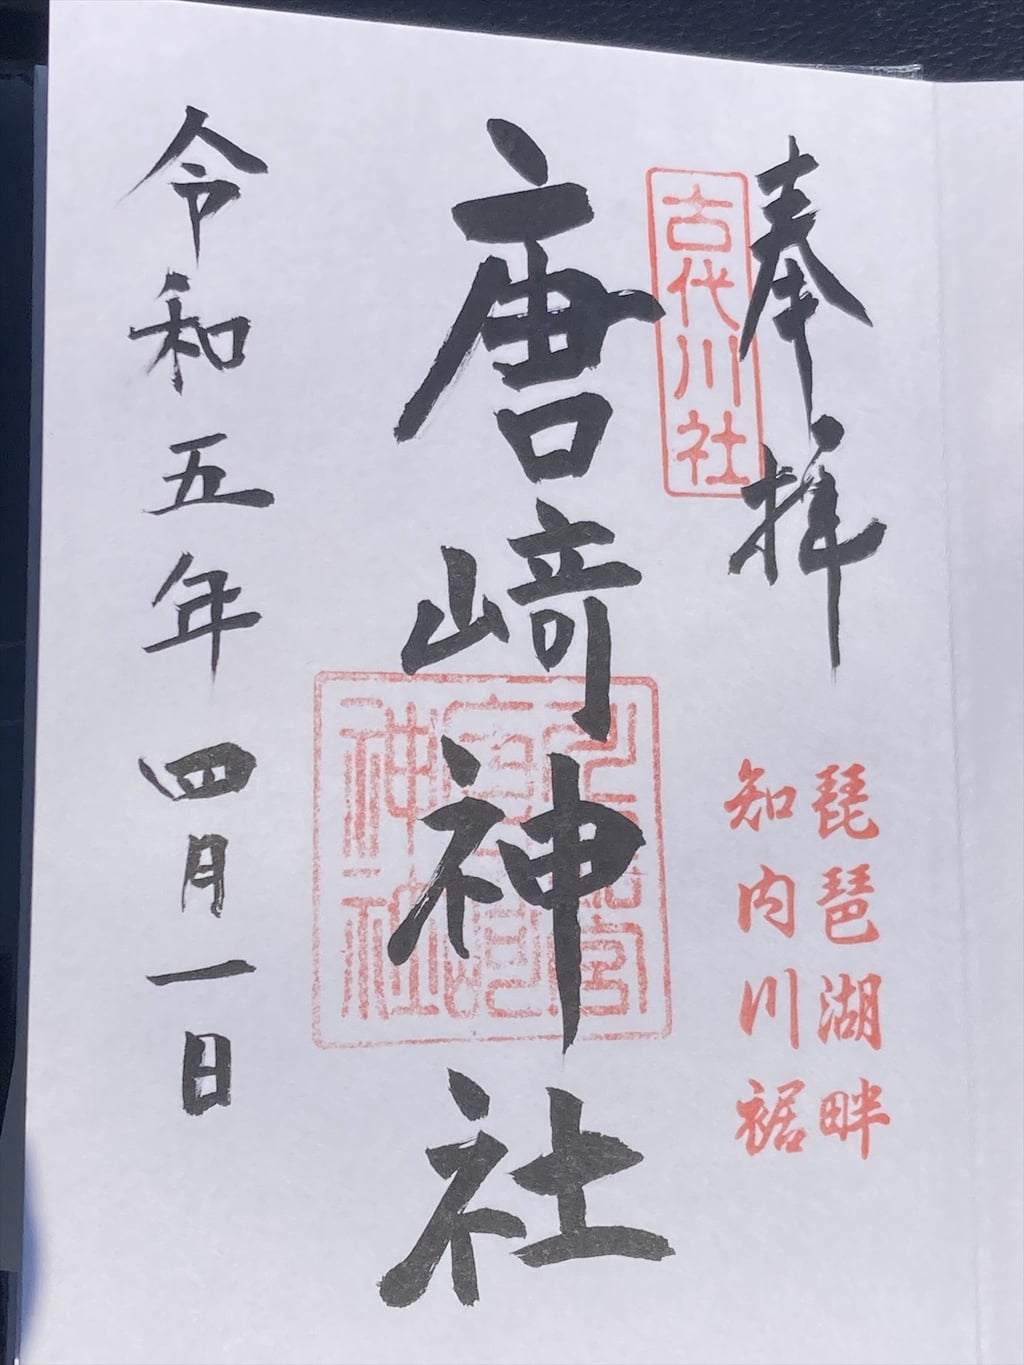 奉拝
古代川社
琵琶湖畔
知内川裾
唐崎神社
令和五年四月一日